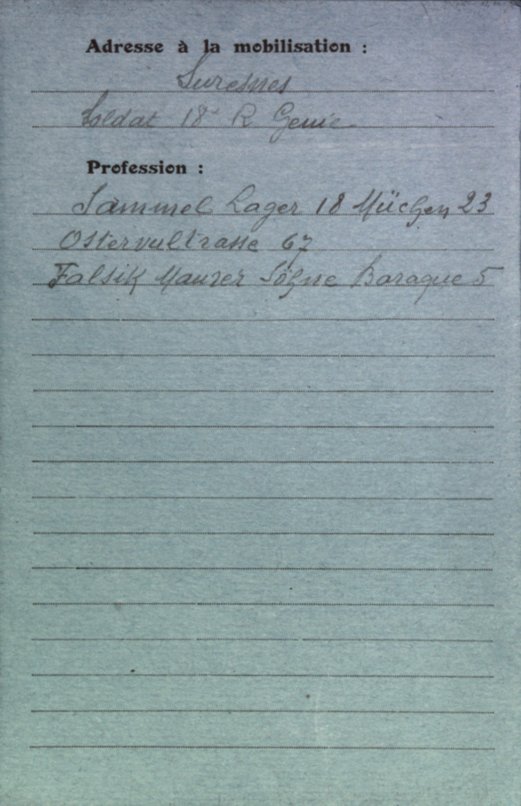 Adresse à la mobilisation :
Suresnes
Soldat 18e R Genie
Profession :
Sammel Lager 18 Müchen 23
Ostervaltrasse 67
Falsik Maurer Söhne Baraque 5